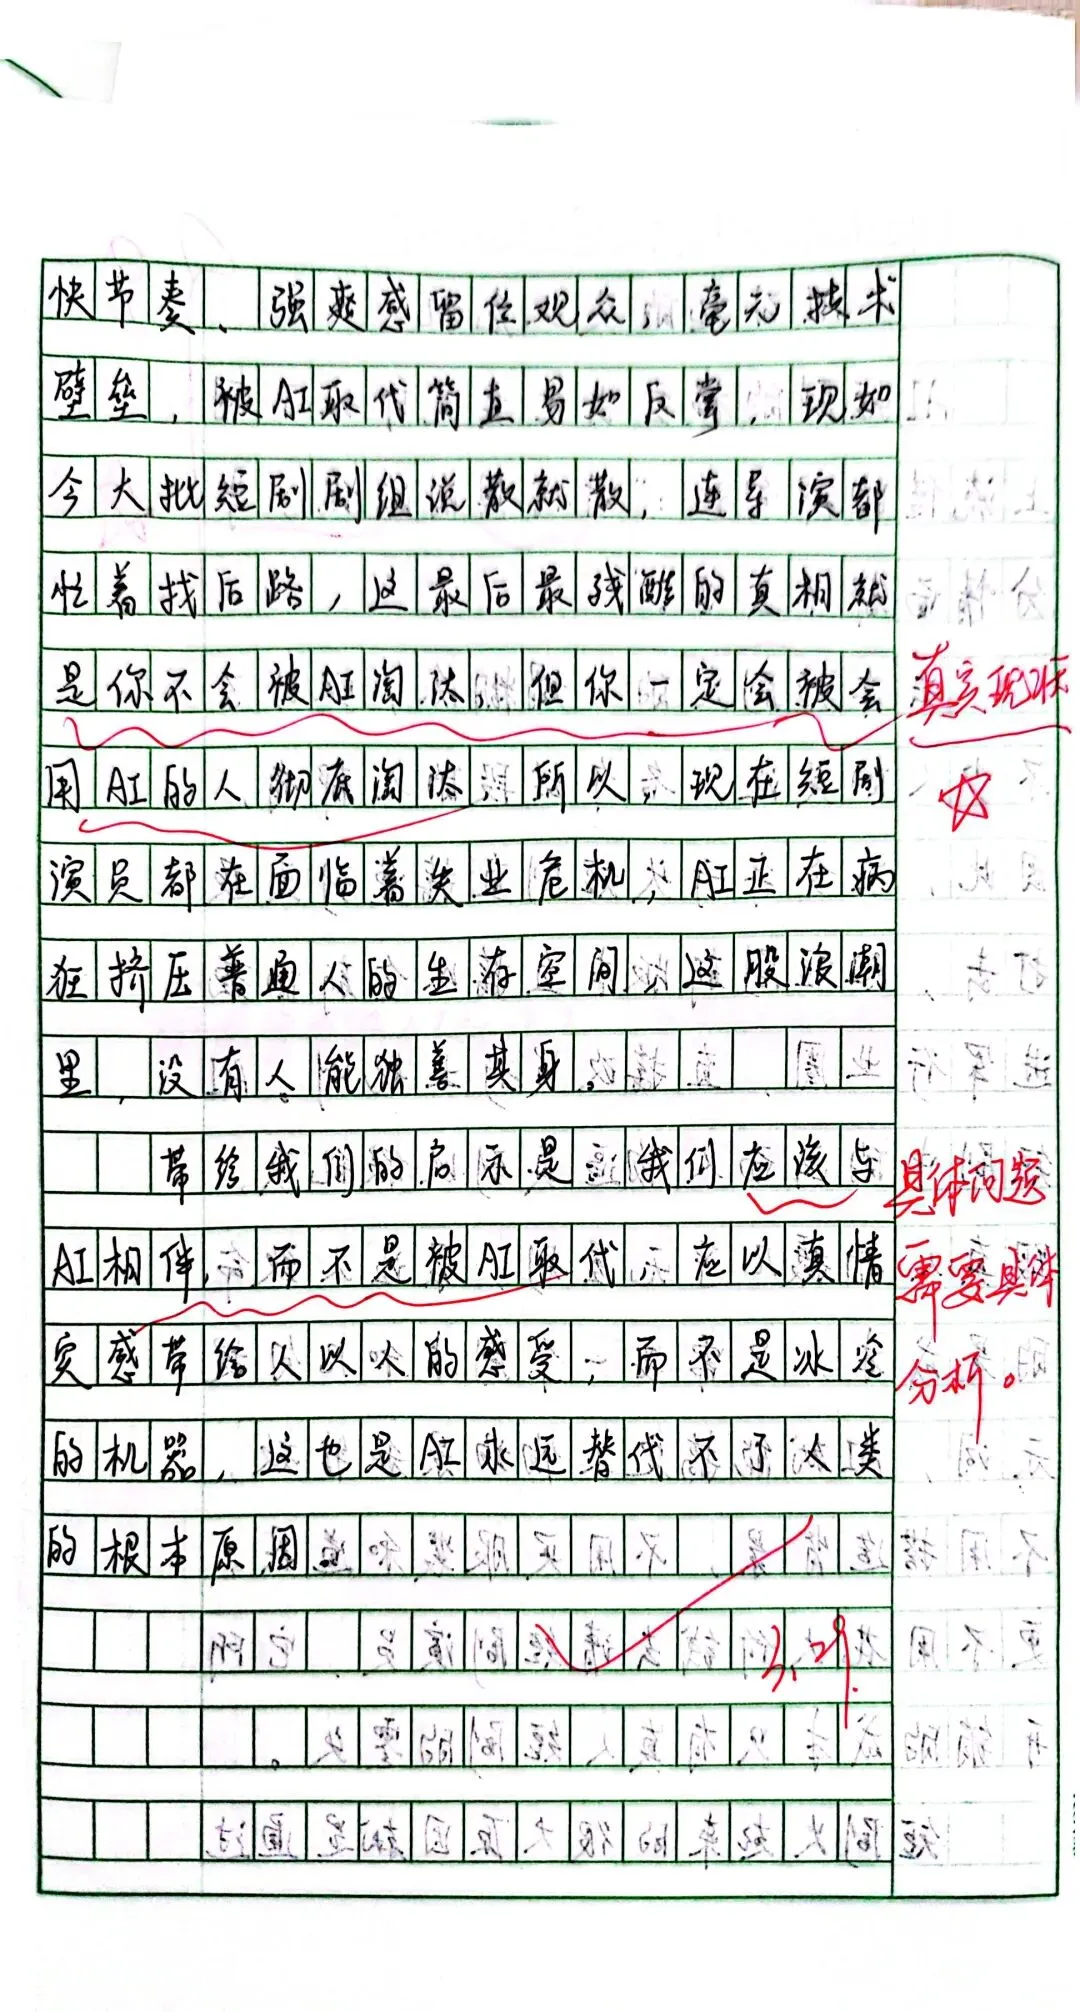 快节奏、强爽感留住观众，毫无技术
壁垒，被AI取代简直易如反掌，现如
今大批短剧剧组说散就散，连导演都
忙着找后路，这最后最残酷的真相就
是你不会被AI淘汰，但你一定会被会
真实现状
用AI的人彻底淘汰，所以，现在短剧
演员都在面临着失业危机，AI正在疯
狂挤压普通人的生存空间，这股浪潮
里，没有人能独善其身。
带给我们的启示是，我们应该与
具体问题
AI相伴，而不是被AI取代，应以真情
需要具体
实感带给人以人的感受，而不是冰冷
分析。
的机器，这也是AI永远替代不了人类
的根本原因
3.29.